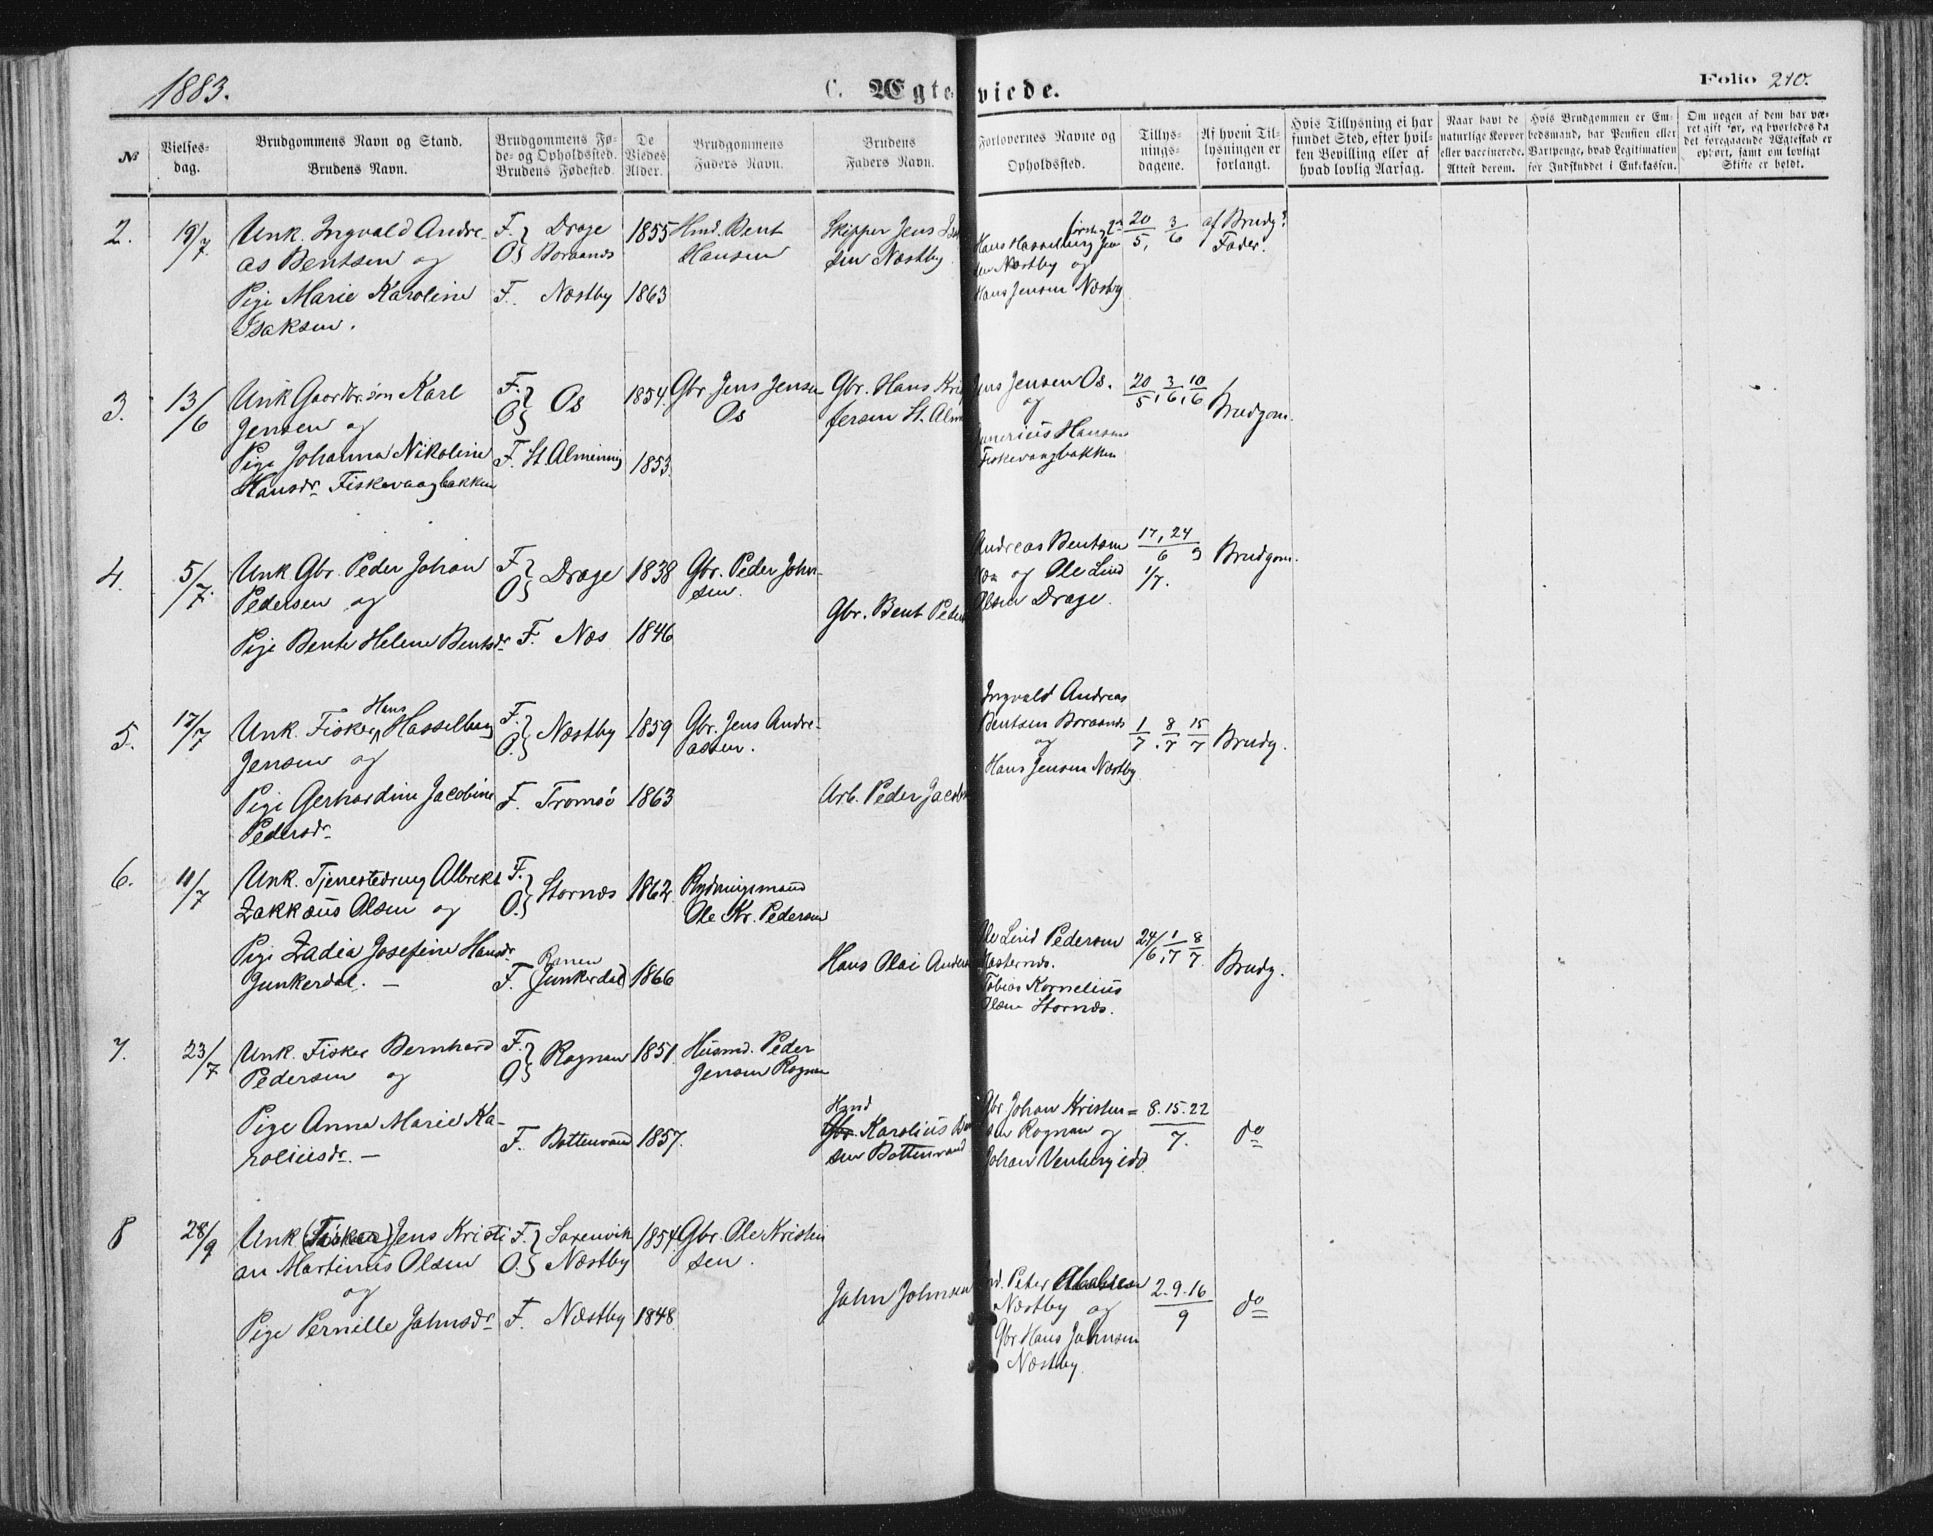 1883.
C. Ægteviede.
Folio 210.
№
Vielses-
dag.
Brudgommens Navn og Stand.
Brudens Navn.
Brudgommens Fø-
de- og Opholdssted.
Brudens Fødested.
De
Viedes
Alder.
Brudgommens
Faders Navn.
Brudens
Faders Navn.
Forlovernes Navne og
Opholdssted.
Tillys-
nings-
dagene.
Af hvem Til-
lysningen er
forlangt.
Hvis Tillysning ei har
fundet Sted, efter hvil-
ken Bevilling eller af
hvad lovlig Aarsag.
Naar havt de
naturlige Kopper
eller vaccinerede.
Attest derom.
Hvis Brudgommen er Em-
bedsmand, har Pension eller
Vartpenge, hvad Legitimation
for Indskuddet i Enkekassen.
Om nogen af dem har væ-
ret gift før, og hvorledes da
det foregaaende Ægteskab er
ophørt, samt om lovligt
Skifte er holdt.
2. 19/7
Unk. Ingvald Andre-
as Bentsen og
Pige Marie Karoline
Isaksen.
F. } Drage
O. } Boraands
F. Næstby
1855
1863
Hmd. Bent
Hansen
Skipper Jens
sen Næstby
Hans Hasselberg Jen
sen Næstby og
Hans Jensen Næsby
20/5, 3/6
af Brudg.
Fader.
3. 13/6
Unk Gaardbr. søn Karl
Jensen og
Pige Johanna Nikoline
Hansdr Fiskevaagbakken
F. } Os
O }
F. St. Almening
1854.
1853
Gbr. Jens Jensen
Os
Gbr. Hans Kri
fersen St. Alm
Jens Jensen Os.
og
Hansen
Fiskevaagbakken
20/5, 3/6, 10/6
Brudgom.
4. 5/7
Unk Gbr. Peder Johan
Pedersen og
Pige Bente Helene Bentsdr
F } Drage
O }
F. Næs
1838
1846
Gbr. Peder John-
sen.
Gbr. Bent Peder
Andreas Bentsen
Næs og Ole Lind
Olsen Drage.
17, 24/6 og
1/7.
Brudgom.
5. 17/7
Unk. Fisker Hans Hasselberg
Jensen og
Pige Gerhardine Jacobine
Pedersdr
F. } Næstby
O. }
F. Tromsö
1859
1863
Gbr. Jens Andre-
assen.
Arb. Peder Jacobs
Ingvald Andreas
Bentsen Boraands
og
Hans Jensen Næstby
1/7. 8/7 15/7
Brudg.
6. 11/7
Unk. Tjenestedreng Albrekt
Zakkæus Olsen og
Pige Zadia Josefine Hansdr
Junkerdal. –
F. } Stornæs
O. }
F. Ranen (Junkerdal)
1862
1866
Rydningsmand
Ole Kr. Pedersen
Hans Olai Anders
Ole Lind Pedersen
Tobias Kornelius
Olsen Stornæs.
24/6, 1/7 8/7
Brudg.
7. 23/7
Unk. Fisker Bernhard
Pedersen og
Pige Anna Marie Ka-
roliusdr. –
F. } Rognan
O }
F. Bottenvand
1851.
1857.
Husmd. Peder
Jensen Rognan
Hmd
Gbr. Karolius
sen Bottenvand
Gbr Johan Kristen=
sen Rognan og
Johan Venberg ibd.
8. 15. 22/7.
do
8 28/9
Unk (Fisker) Jens Kristi
an Martinus Olsen
og
Pige Pernille Jahnsdr
F. } Saxenvik
O. } Næstby
F. Næstby
1854
1848.
Gbr. Ole Kristen
sen.
Jahn Johnsen
Peter
Næstby og
Gbr Hans Jahnsen
Næstby.
2. 9. 16/9
do